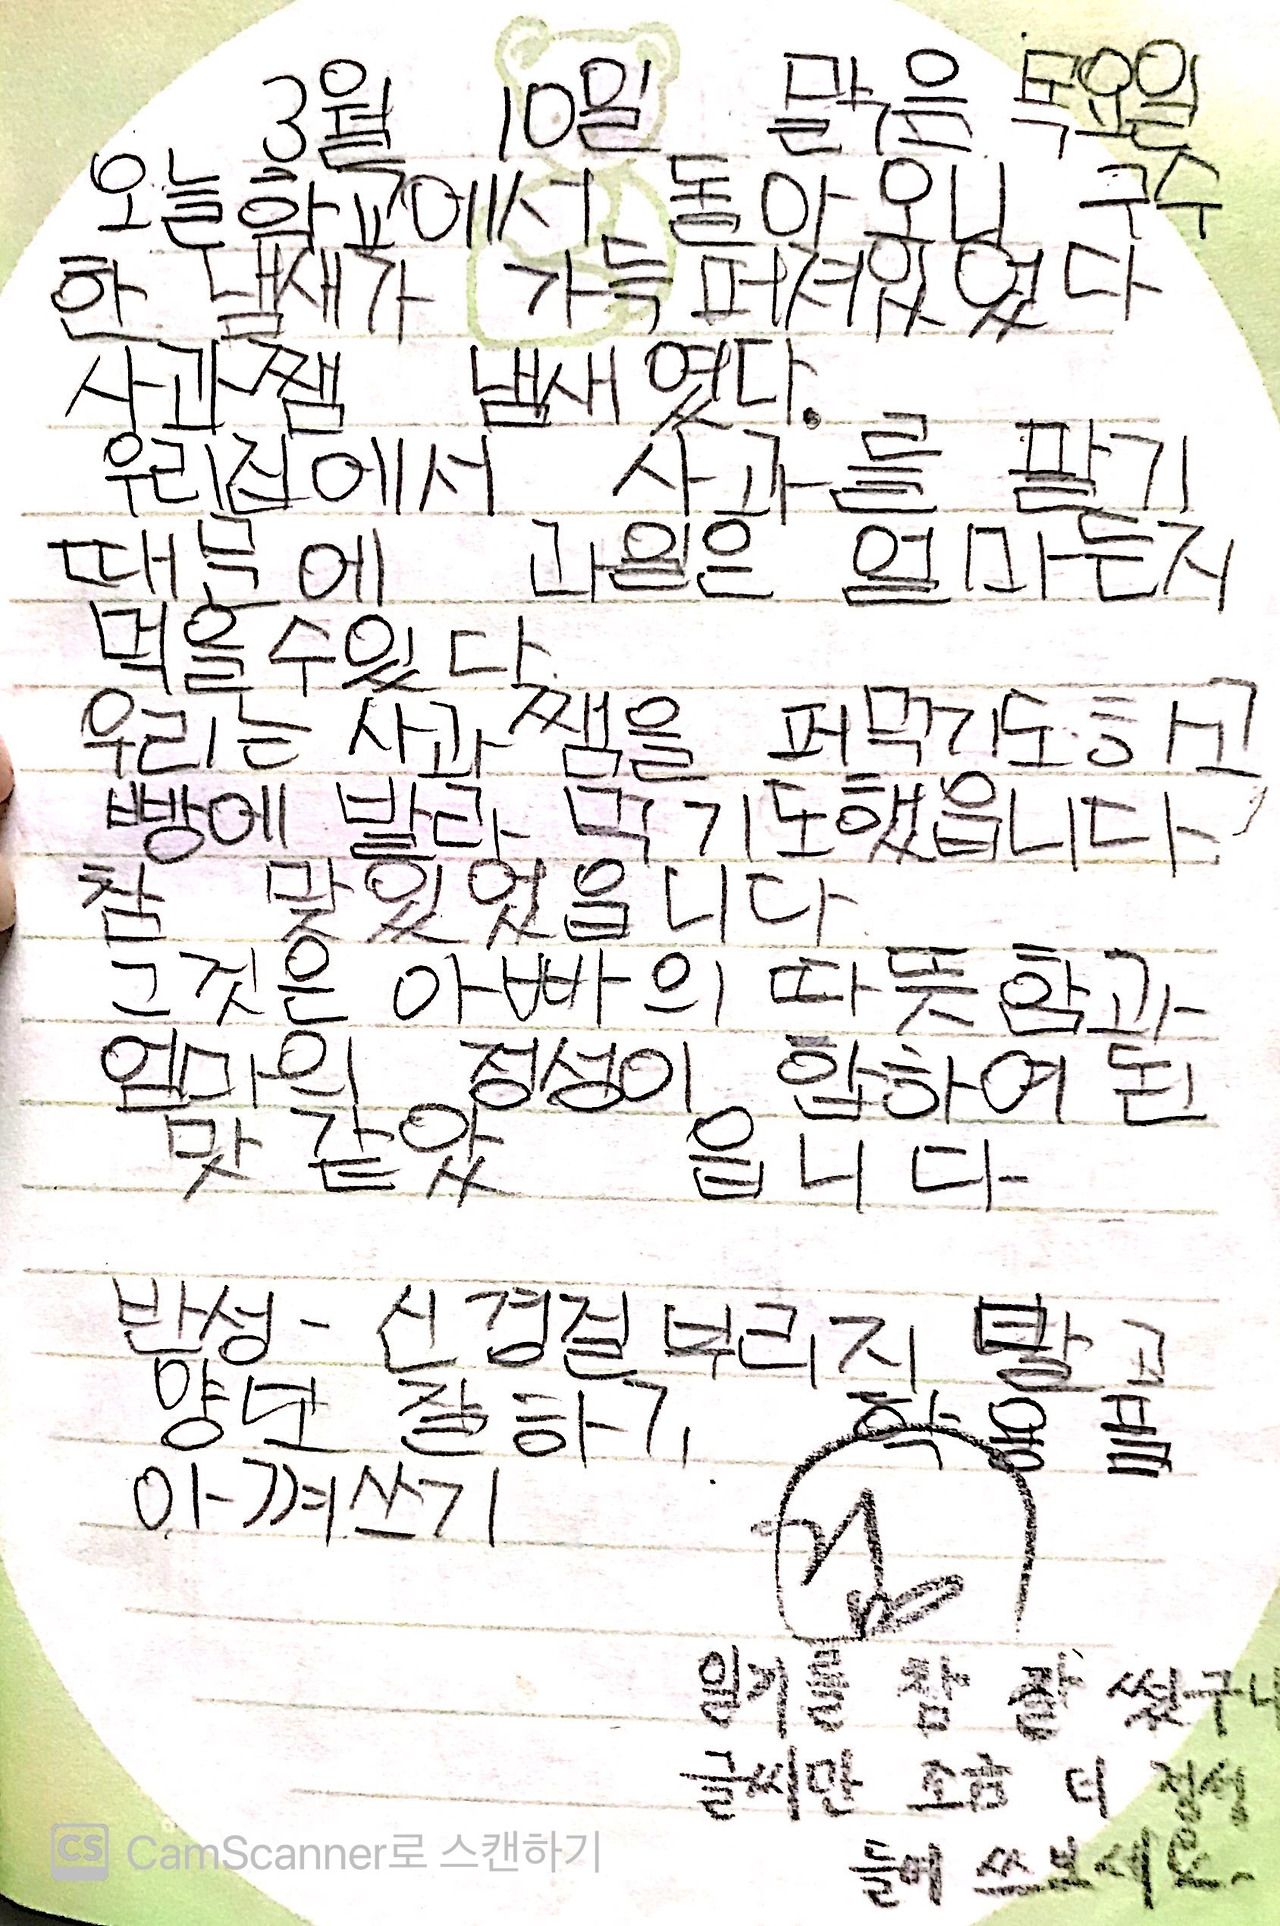 3월 10일 맑은 목요일
오늘 학교에서 돌아오니 구수
한 냄새가 가득 퍼져있었다
사과쨈 냄새였다.
우리집에서 사과를 팔기
때문에 과일은 얼마든지
먹을수있다.
우리는 사과쨈을 퍼먹기도하고
빵에 발라 먹기도했읍니다
참 맞있었읍니다
그것은 아빠의 따뜻함과
엄마의 정성이 합하여 된
맛 같았 읍니다

반성- 신경질부리지 말고
양보 잘하기, 학용품
아껴쓰기
일기를 참 잘 썼구나
글씨만 조금 더 정성
들여 쓰보세요.
CS CamScanner로 스캔하기